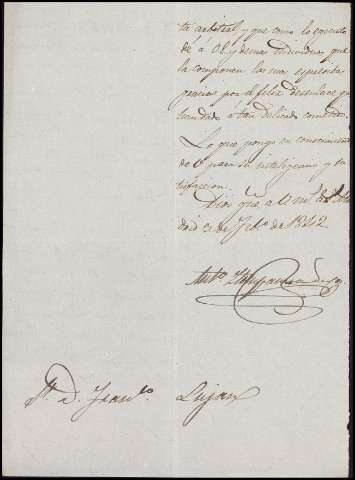 ta arbitral, y que como lo egecuto
dé á V. y demas individuos que
la componen las mas espresivas
gracias por el feliz desenlace que
han dado á tan delicado cometido.
Lo que pongo en conocimiento
de V. para su inteligencia y sa
tisfaccion.
Dios gue. á V. m.s a.s
drid 3 de Feb.o de 1842.
Ant.o
Sr. D. Fran.co Lujan